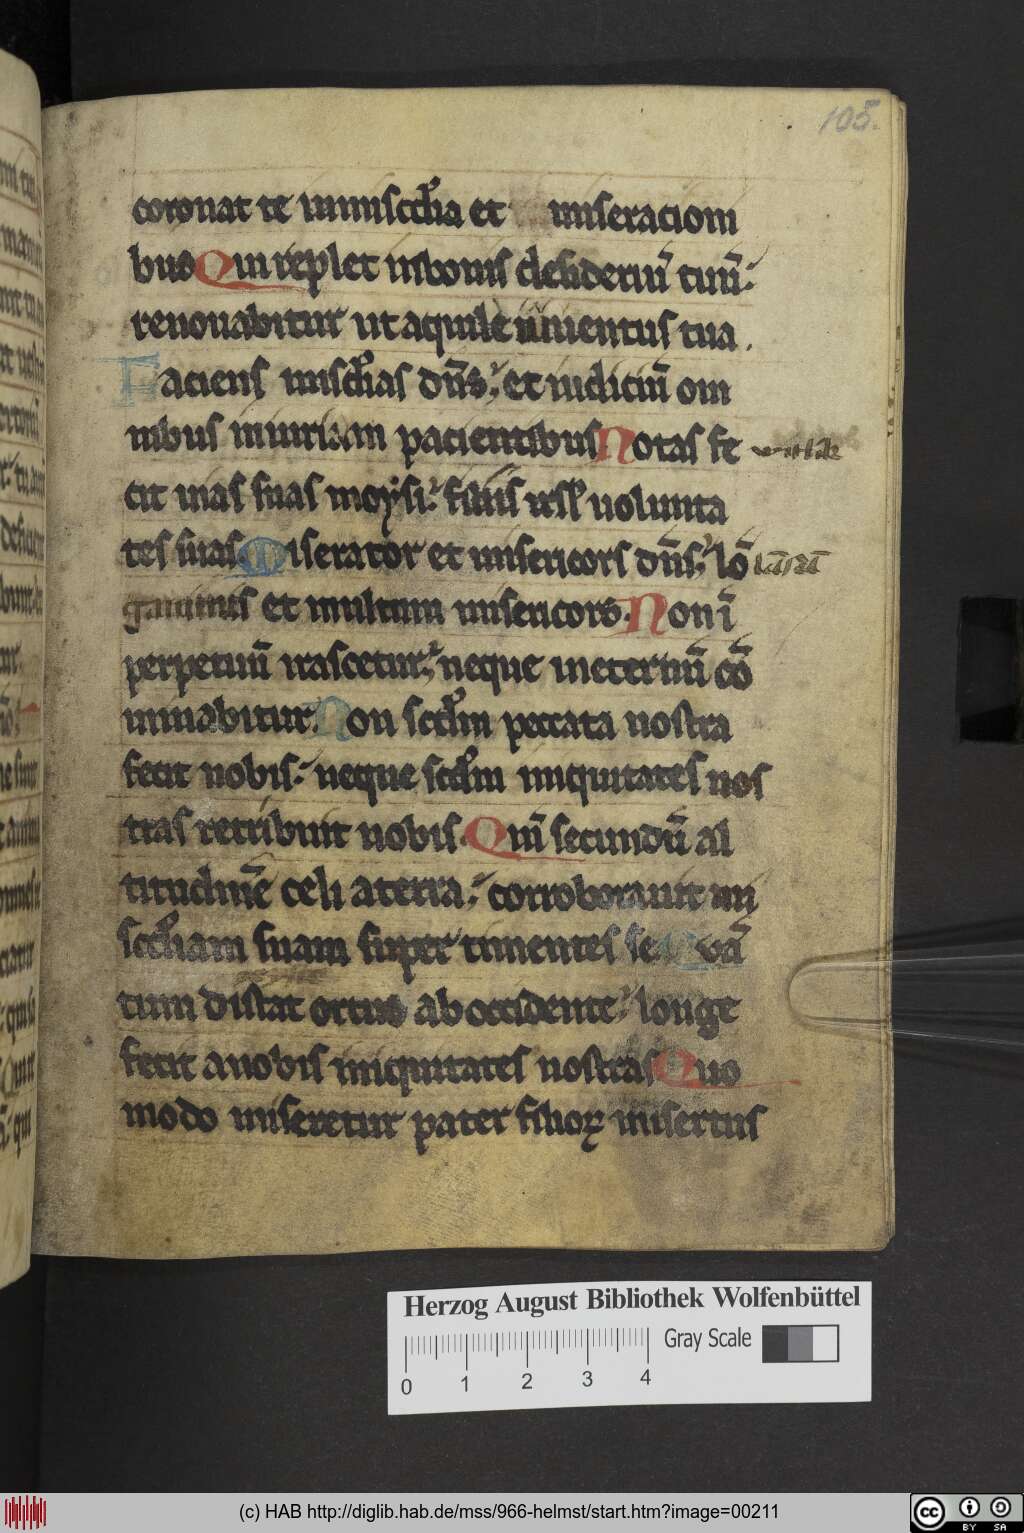 105.
coronat te inmiscd̄ia et miseracioni
bus Qui replet inbonis desideriū tuū:
renouabitur ut aquile iuuentus tua.
Faciens miscd̄ias dn̄s: et iudiciū om
nibus iniuriam pacientibus Notas fe
cit uias suas moysi: filiis isrl̄ uolunta
tes suas Miserator et misericors dn̄s: lō
ganimis et multum misericors. Non ī
perpetuū irascetur: neque ineternū cō
minabitur. Non scd̄m peccata nostra
fecit nobis: neque scd̄m iniquitates nos
tras retribuit nobis. Qm̄ secundū al
titudinē celi aterra: corroborauit mi
scd̄iam suam super timentes se Quā
tum distat ortus ab occidente: longe
fecit anobis iniquitates nostras Quo
modo miseretur pater filioꝝ misertus
Herzog August Bibliothek Wolfenbüttel
Gray Scale
0 1 2 3 4
(c) HAB http://diglib.hab.de/mss/966-helmst/start.htm?image=00211
cc BY SA